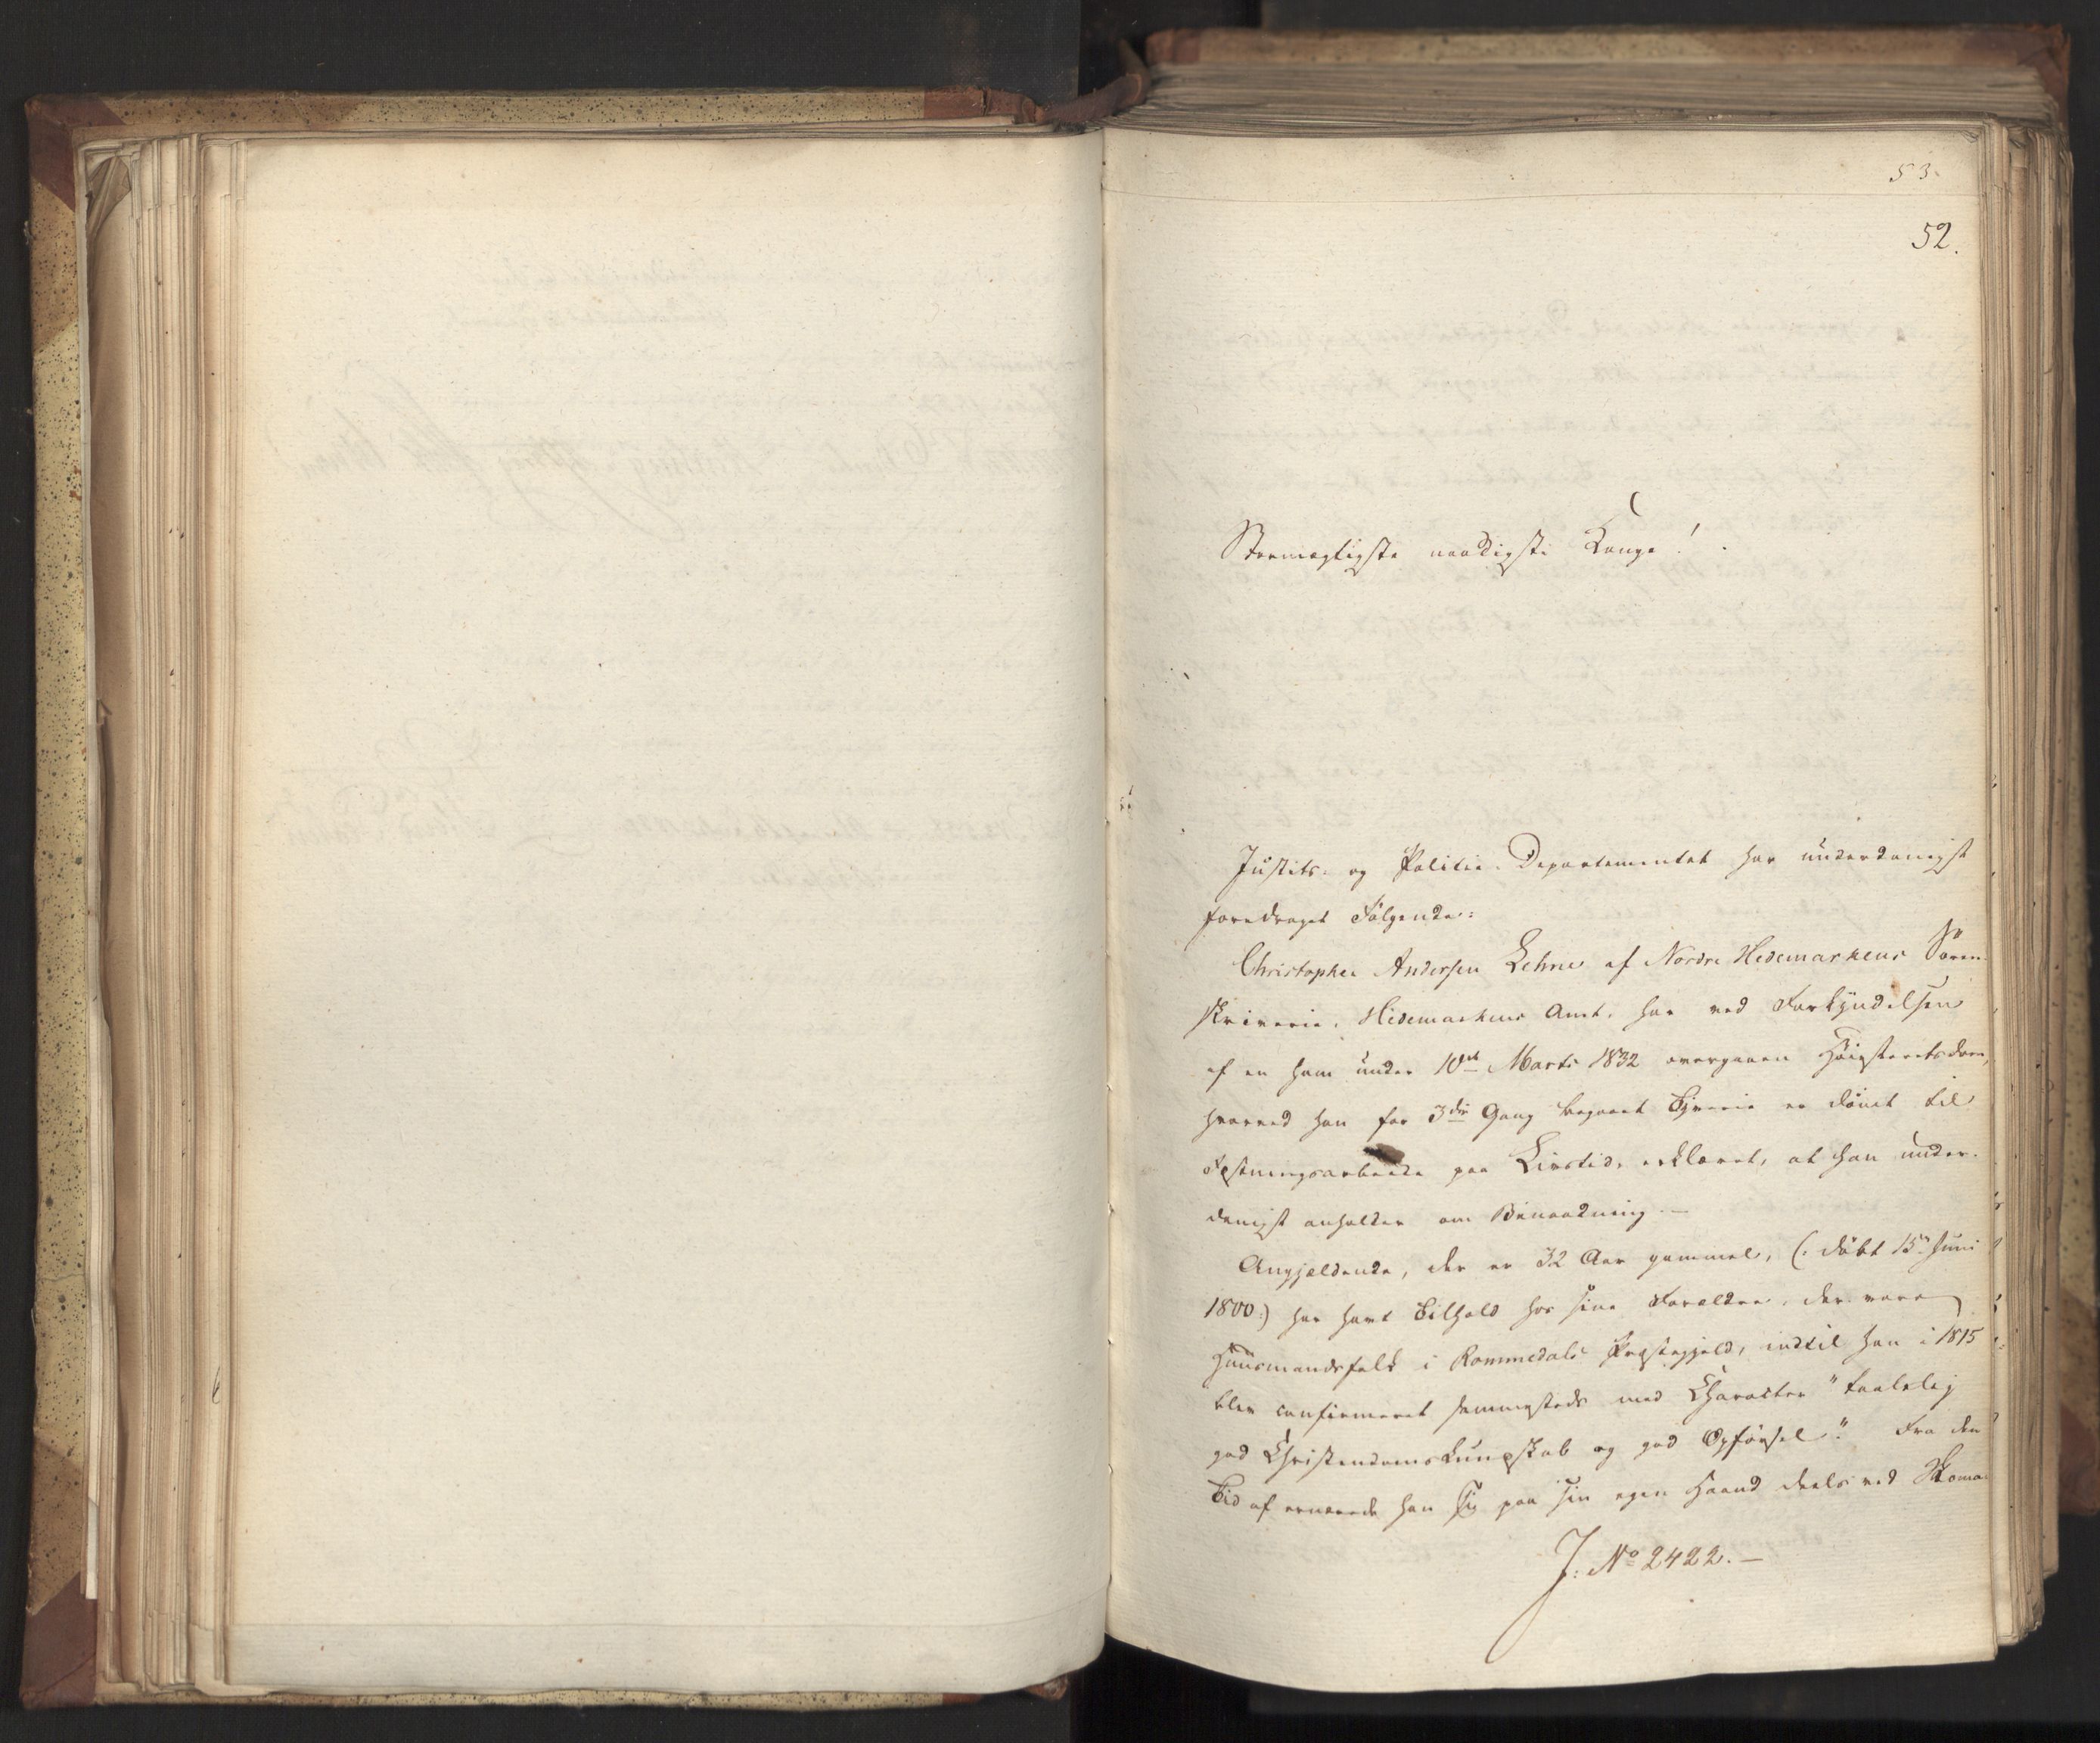 53.
52.
Stormægtigste naadigste Konge!
Justits- og Politie-Departementet har underdanigst
foredraget Følgende:
Christopher Andersen Lehne af Nordre Hedemarkens Soren-
skriverie, Hedemarkens Amt, har ved Forkyndelsen
af en ham under 10de Marts 1832 overgaaen Høiesteretsdom,
hvorved han for 3die Gang begaaet Tyverie er dømt til
Fæstningsarbeide paa Livstid, erklæret, at han under-
danigst anholder om Benaadning.—
Angjældende, der er 32 Aar gammel, (: døbt 15de Juni
1800:) har havt Tilhold hos sine Forældre, der vare
Huusmandsfolk i Rommedals Præstegjeld, indtil han i 1815
blev confirmeret sammesteds med Charakter "taalelig
god Christendomskundskab og god Opførsel". Fra den
Tid af ernærede han sig paa sin egen Haand deels ved Skoma-
J: No 2422.—